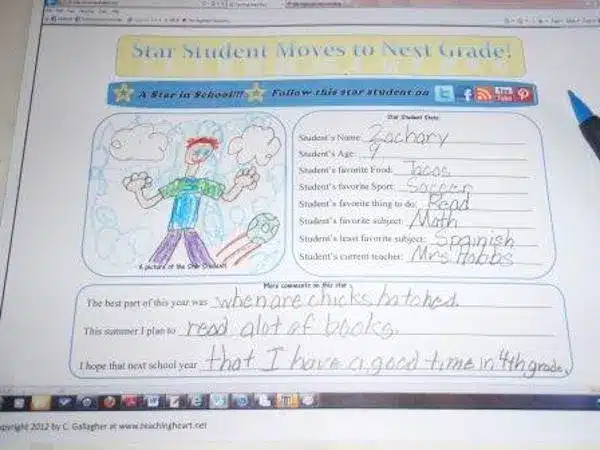 Star Student Moves to Next Grade!
A Star in School!!! Follow this star student on
You Tube
Star Student Stats
Student's Name: Zachary
Student's Age: 9
Student's favorite Food: Tacos
Student's favorite Sport: Soccer
Student's favorite thing to do: Read
Student's favorite subject: Math
Student's least favorite subject: Spainish
Student's current teacher: Mrs. Hobbs
A picture of the Star Student
More comments on this star
The best part of this year was when are chicks hatched.
This summer I plan to read alot of books.
I hope that next school year that I have a good time in 4th grade.
opyright 2012 by C. Gallagher at www.teachingheart.net